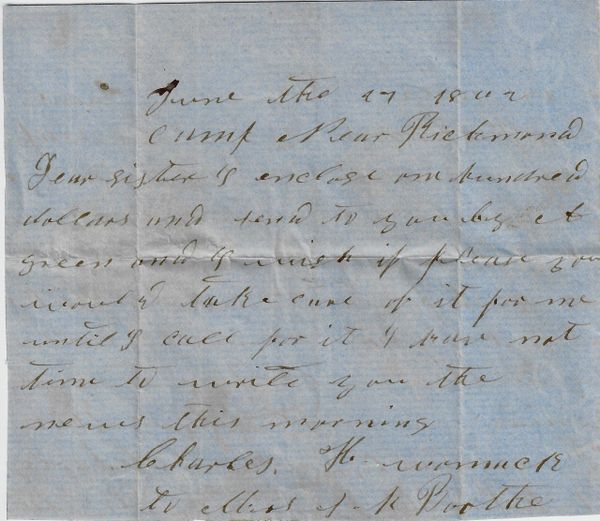 June the 27 1862
Camp Near Richmond
Dear sister I enclose one hundred
dollars and send to you by A
green and I wish if please you
would take care of it for me
until I call for it I have not
time to write you the
news this morning
Charles. H womack
to Mrs J M Boothe